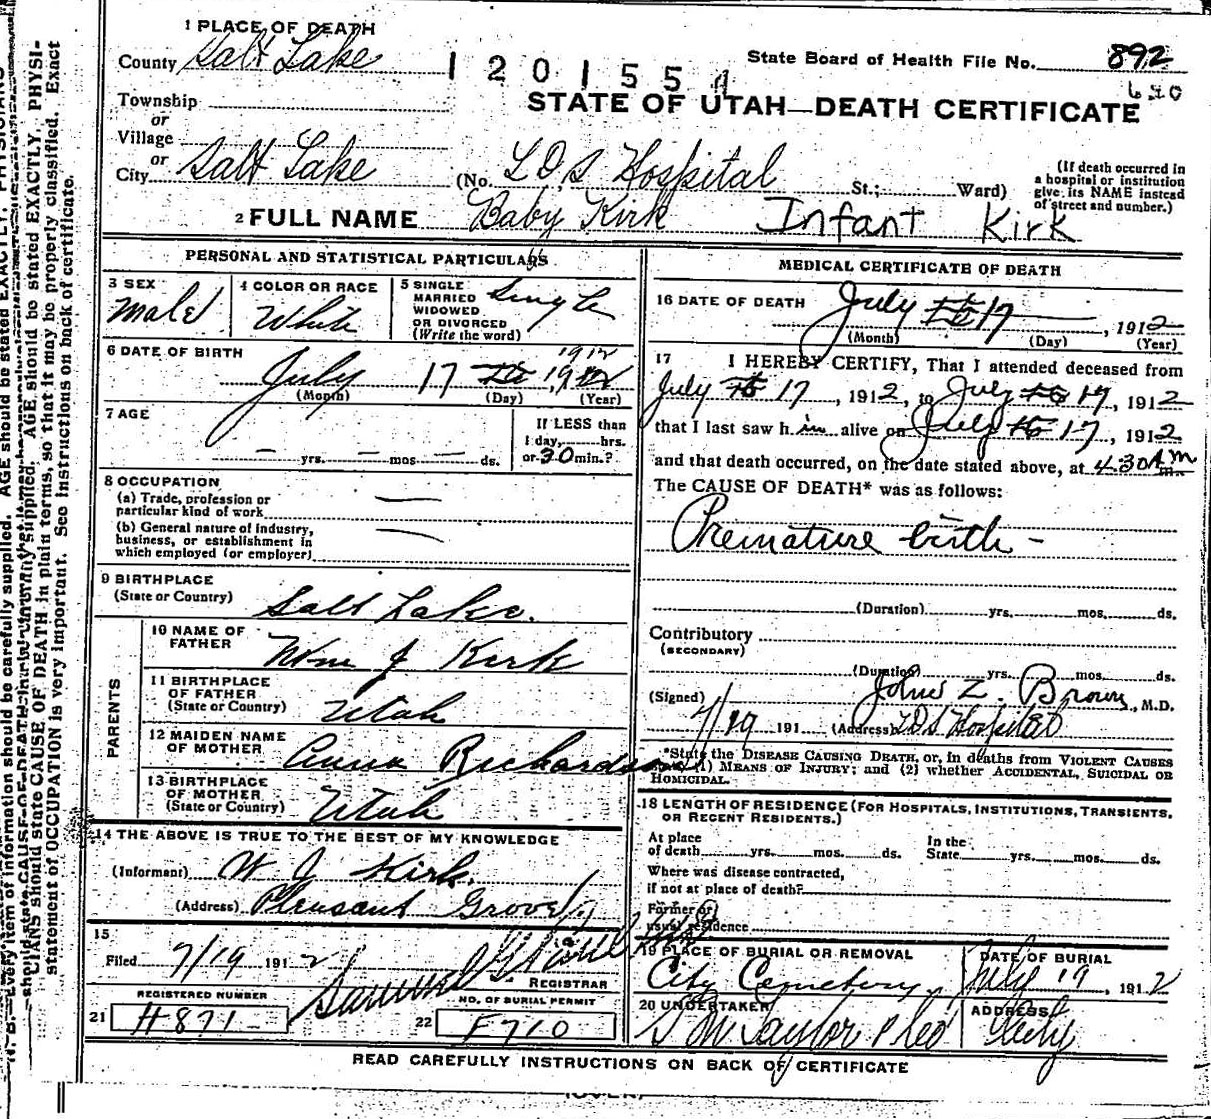 1 PLACE OF DEATH
County Salt Lake
1201554
State Board of Health File No. 892
Township
or
Village
or
City Salt Lake
STATE OF UTAH—DEATH CERTIFICATE
(No. L.D.S Hospital St.; Ward)
(If death occurred in a hospital or institution give its NAME instead of street and number.)
2 FULL NAME Baby Kirk Infant Kirk
PERSONAL AND STATISTICAL PARTICULARS
3 SEX Male
4 COLOR OR RACE White
5 SINGLE MARRIED WIDOWED OR DIVORCED (Write the word) Single
6 DATE OF BIRTH July 17 1912
(Month) (Day) (Year)
7 AGE
— yrs. — mos — ds.
If LESS than
1 day, hrs.
or 30 min.?
8 OCCUPATION
(a) Trade, profession or
particular kind of work —
(b) General nature of industry,
business, or establishment in
which employed (or employer) —
9 BIRTHPLACE
(State or Country) Salt Lake.
PARENTS
10 NAME OF FATHER Wm J Kirk
11 BIRTHPLACE OF FATHER (State or Country) Utah
12 MAIDEN NAME OF MOTHER Anna Richardson
13 BIRTHPLACE OF MOTHER (State or Country) Utah
14 THE ABOVE IS TRUE TO THE BEST OF MY KNOWLEDGE
(Informant) W J Kirk.
(Address) Pleasant Grove
15
Filed 7/19 1912 Samuel G.
REGISTRAR
REGISTERED NUMBER
21 H871
NO. OF BURIAL PERMIT
22 F710
MEDICAL CERTIFICATE OF DEATH
16 DATE OF DEATH July 17, 1912
(Month) (Day) (Year)
17 I HEREBY CERTIFY, That I attended deceased from
July 17, 1912, to July 17, 1912
that I last saw h im alive on July 17, 1912
and that death occurred, on the date stated above, at 4.30 A m
The CAUSE OF DEATH* was as follows:
Premature birth -
(Duration) yrs. mos. ds.
Contributory
(SECONDARY)
(Duration) yrs. mos. ds.
(Signed) John Z. Brown, M.D.
7/19 191 (Address) LDS Hospital
*State the DISEASE CAUSING DEATH, or, in deaths from VIOLENT CAUSES
(1) MEANS OF INJURY; and (2) whether ACCIDENTAL, SUICIDAL OR
HOMICIDAL.
18 LENGTH OF RESIDENCE (FOR HOSPITALS, INSTITUTIONS, TRANSIENTS,
OR RECENT RESIDENTS.)
At place of death yrs. mos. ds. In the State yrs. mos. ds.
Where was disease contracted,
if not at place of death?
Former or
usual residence
19 PLACE OF BURIAL OR REMOVAL City Cemetery
DATE OF BURIAL July 19, 1912
20 UNDERTAKER S M Taylor
ADDRESS City
READ CAREFULLY INSTRUCTIONS ON BACK OF CERTIFICATE
(OVER)
N. B.—Every item of information should be carefully supplied. AGE should be stated EXACTLY. PHYSICIANS
should state CAUSE OF DEATH in
CIANS should state CAUSE OF DEATH in plain terms, so that it may be properly classified. Exact
statement of OCCUPATION is very important. See instructions on back of certificate.